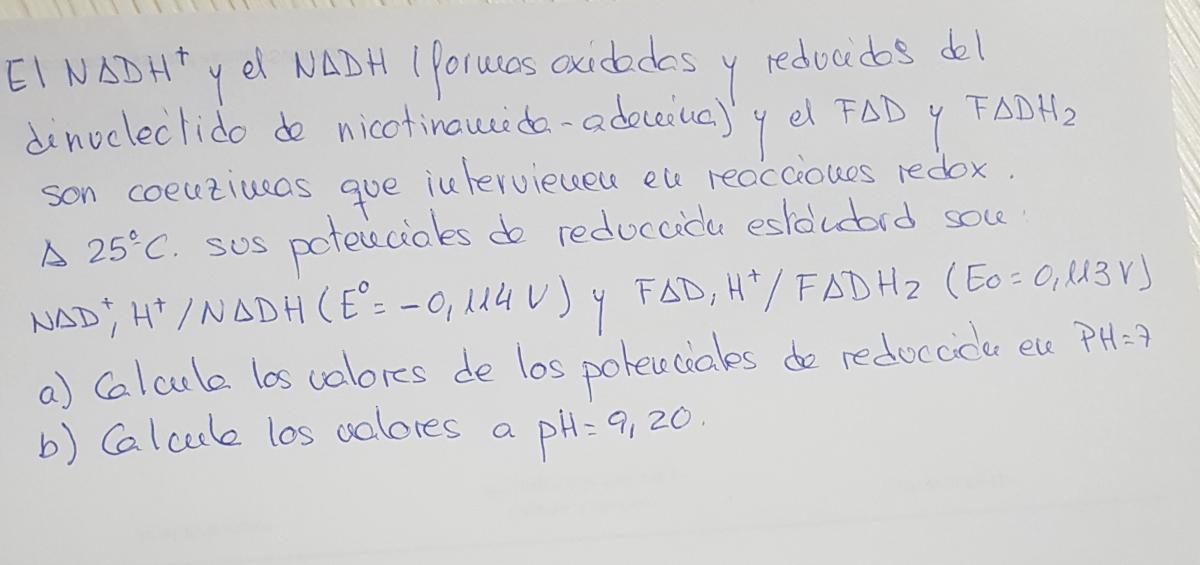 El NADH⁺ y el NADH (formas oxidadas y reducidas del
dinucleótido de nicotinamida-adenina) y el FAD y FADH₂
son coenzimas que intervienen en reacciones redox.
A 25°C. sus potenciales de reducción estándard son:
NAD⁺, H⁺/NADH (E° = -0,114 V) y FAD, H⁺/FADH₂ (Eo = 0,113 V)
a) Calcula los valores de los potenciales de reducción en PH=7
b) Calcule los valores a pH = 9,20.